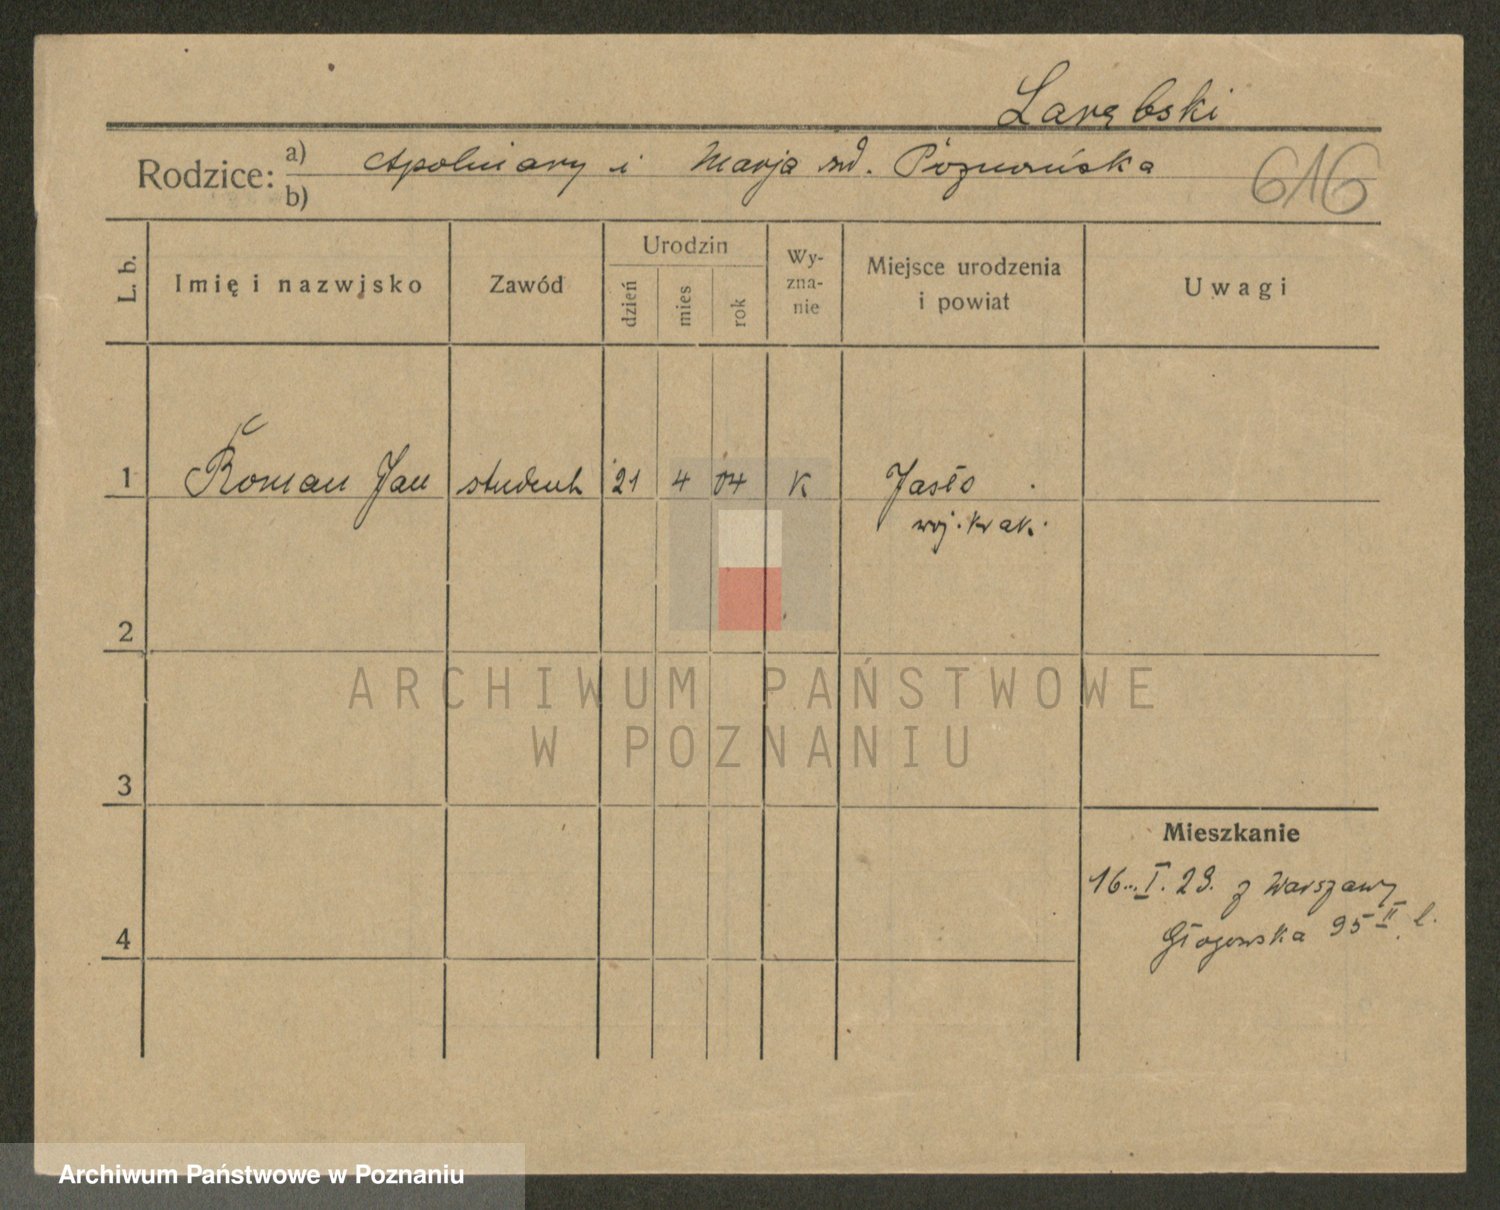 Larębski
616
Rodzice: a) Apolinary i Marja zd. Poznańska
b)
L. b.
Imię i nazwisko
Zawód
Urodzin
dzień
mies
rok
Wy-
zna-
nie
Miejsce urodzenia
i powiat
Uwagi
1 Roman Jan student 21 4 04 K Jasło
woj. Krak.
2
ARCHIWUM PAŃSTWOWE
W POZNANIU
3
Mieszkanie
16. I. 29. z Warszawy
Głogowska 95 II l.
4
Archiwum Państwowe w Poznaniu